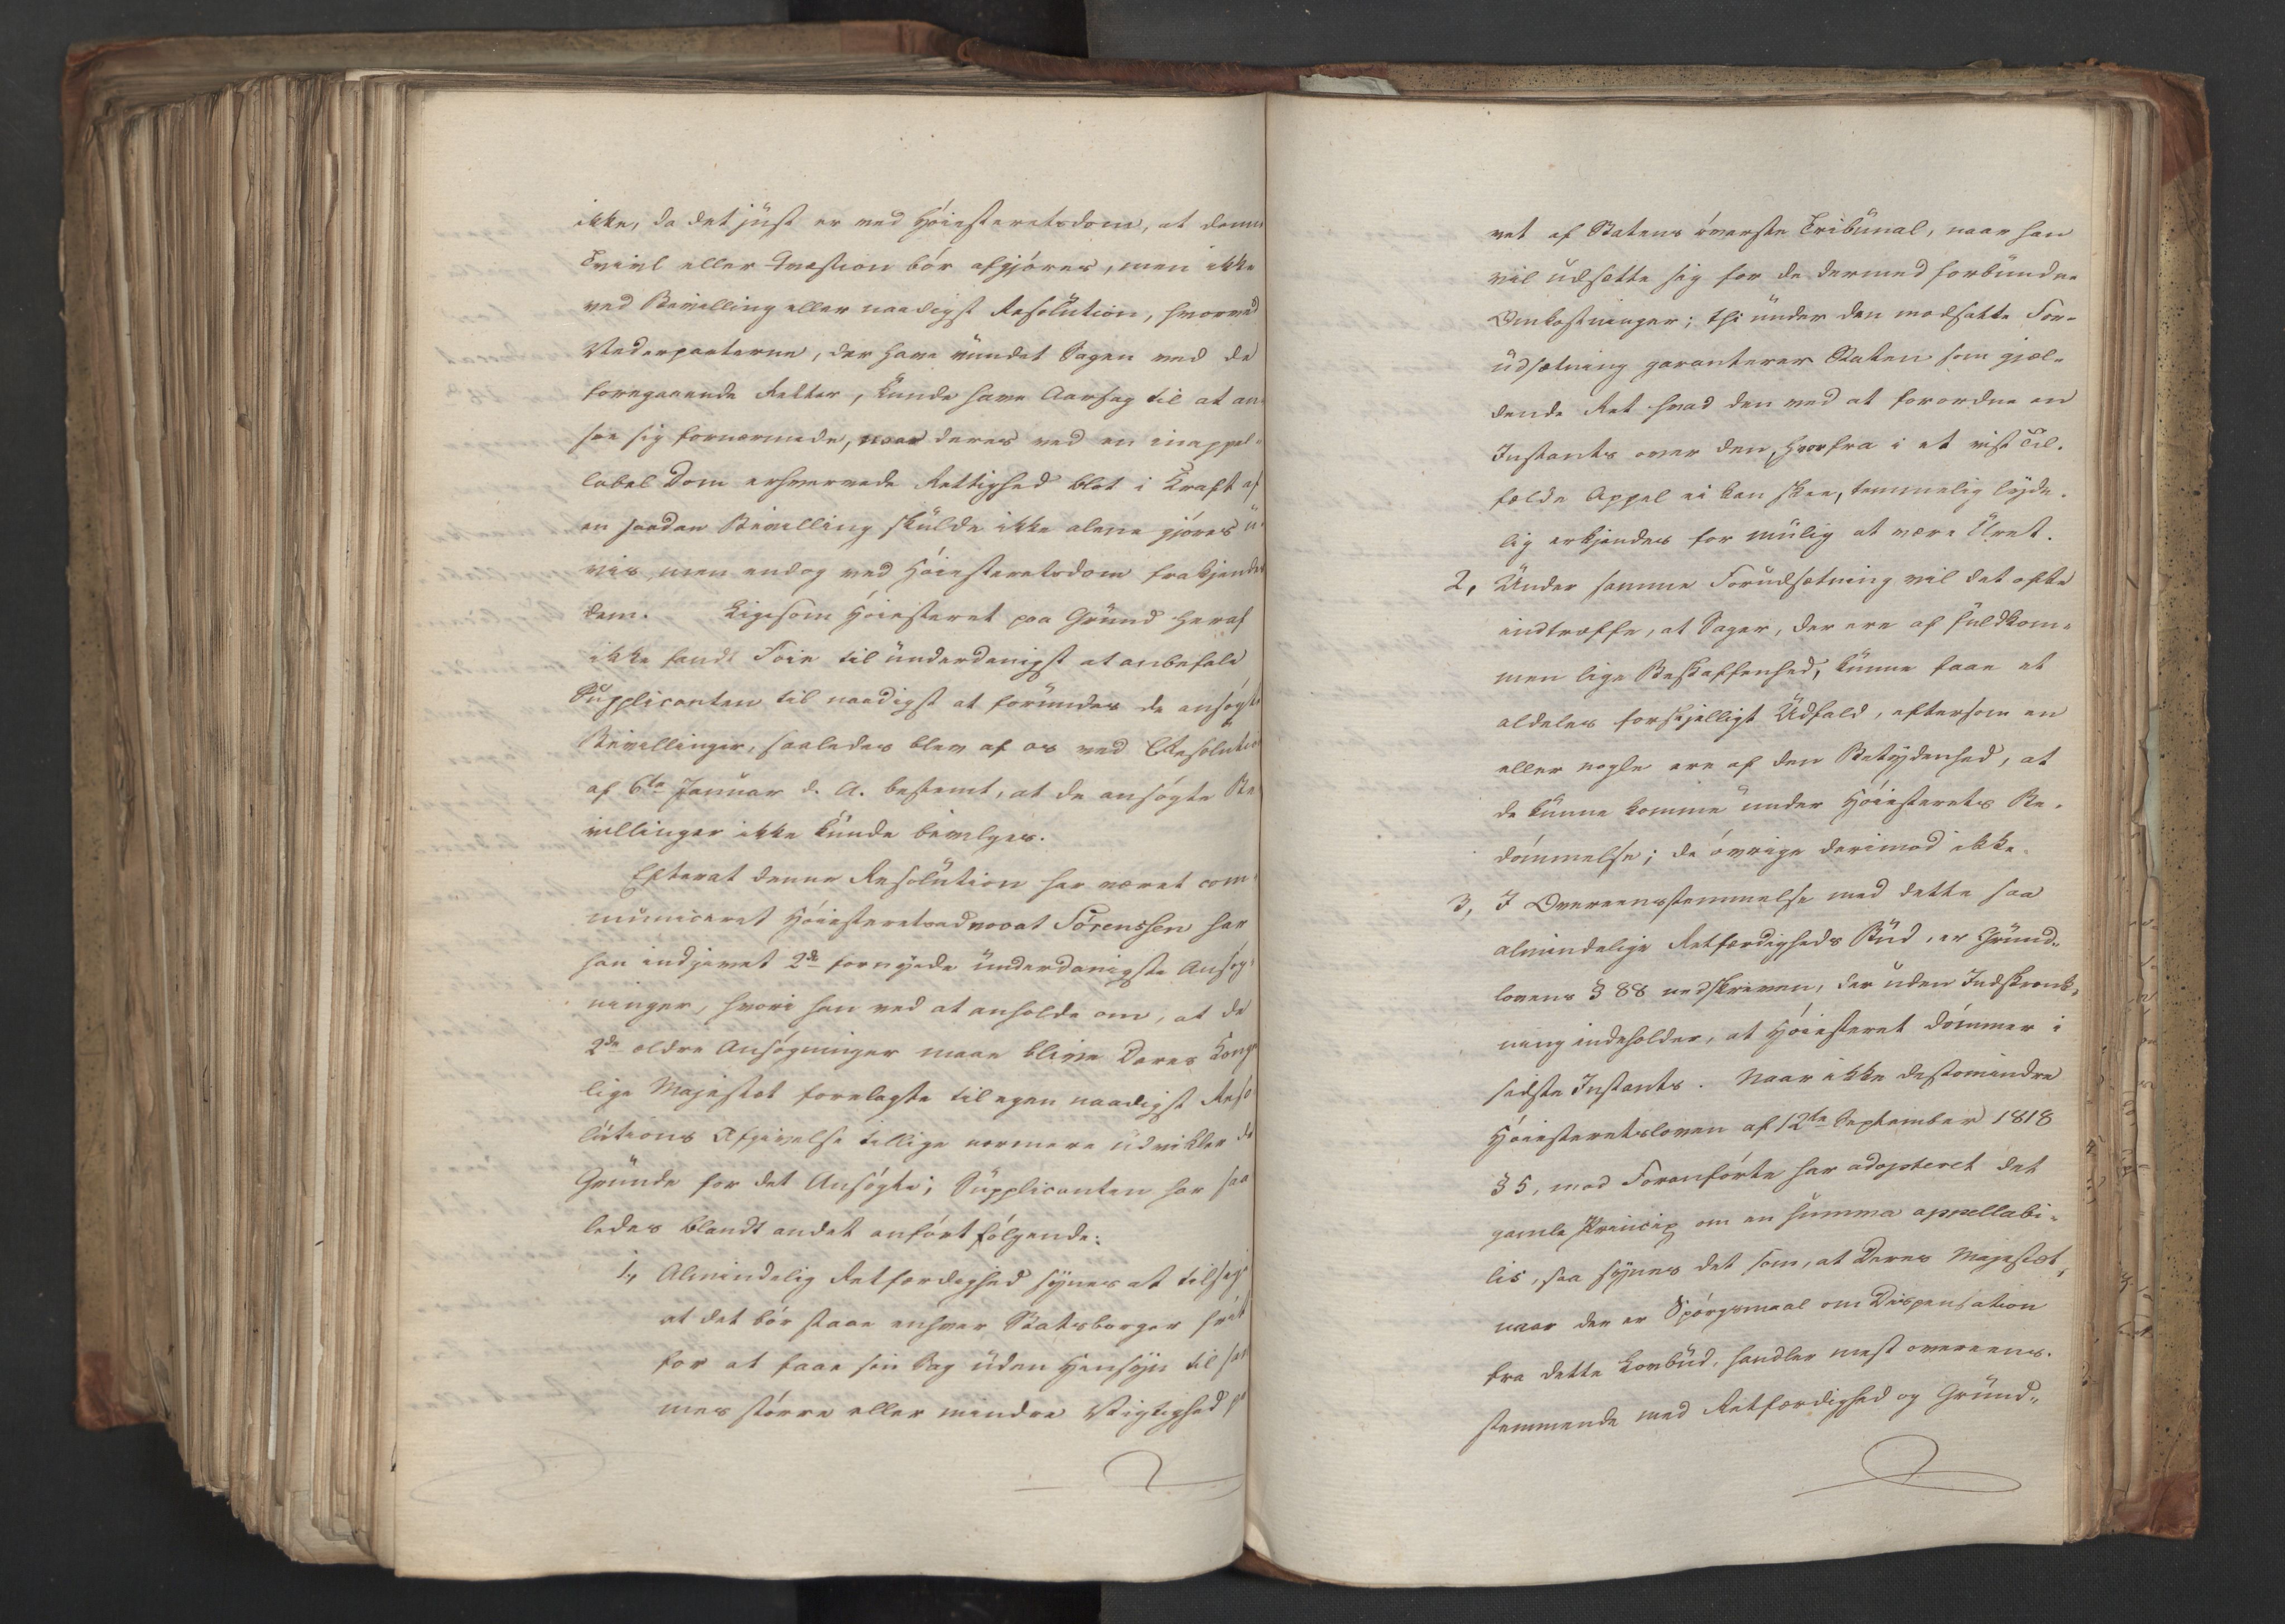 ikke, da det just er ved Höiesteretsdom, at denne
Tvivl eller Qvæstion bör afgjöres, men ikke
ved Bevilling eller naadigst Resolution, hvorved
Vederparterne, der have vundet Sagen ved de
foregaaende Retter, kunde have Aarsag til at an-
see sig fornærmede, naar deres ved en inappel-
label Dom erhvervede Rettighed blot i Kraft af
en saadan Bevilling skulde ikke alene gjöres u-
vis, men endog ved Höiesteretsdom frakjendes
dem. Ligesom Höiesteret paa Grund heraf
ikke fandt Föie til underdanigst at anbefale
Supplicanten til naadigst at forundes de ansögte
Bevillinger, saaledes blev af os ved Resolution
af 6te Januar d. A. bestemt, at de ansögte Be-
villinger ikke kunde bevilges.
Efterat denne Resolution har været com-
municeret Höiesteretsadvocat Sörenssen har
han indgivet 2de fornyede underdanigste Ansög-
ninger, hvori han ved at anholde om, at de
2de ældre Ansögninger maae blive Deres Konge-
lige Majestæt forelagte til egen naadigst Reso-
lutions Afgivelse tillige nærmere udvikler de
Grunde for det Ansögte; Supplicanten har saa
ledes blandt andet anfört fölgende:
1, Almindelig Retfærdighed synes at tilsige
at det bör staae enhver Statsborger frit
for at faae sin Sag uden Hensyn til sam
mes större eller mindre Vigtighed prö
vet af Statens överste Tribunal, naar han
vil udsætte sig for de dermed forbundne
Omkostninger; thi under den modsatte For-
udsætning garanterer Staten som gjæl-
dende Ret hvad den ved at forordne en
Instants over den, hvorfra i et vist Til-
fælde Appel ei kan skee, temmelig lyde-
lig erkjendes for mulig at være Uret.
2, Under samme Forudsætning vil det ofte
indtræffe, at Sager, der ere af fuldkom-
men lige Beskaffenhed, kunne faae et
aldeles forskjelligt Udfald, eftersom en
eller nogle ere af den Betydenhed, at
de kunne komme under Höiesterets Be-
dömmelse; de övrige derimod ikke.
3, I Overeensstemmelse med dette saa
almindelige Retfærdigheds Bud, er Grund-
lovens § 88 nedskreven, der uden Indskrænk-
ning indeholder, at Höiesteret dömmer i
sidste Instants. Naar ikke destomindre
Höiesteretsloven af 12te September 1818
§ 5, mod Foranförte har adopteret det
gamle Princip om en summa appellabi-
lis, saa synes det som, at Deres Majestæt,
naar der er Spörgsmaal om Dispensation
fra dette Lovbud, handler mest overeens-
stemmende med Retfærdighed og Grund-